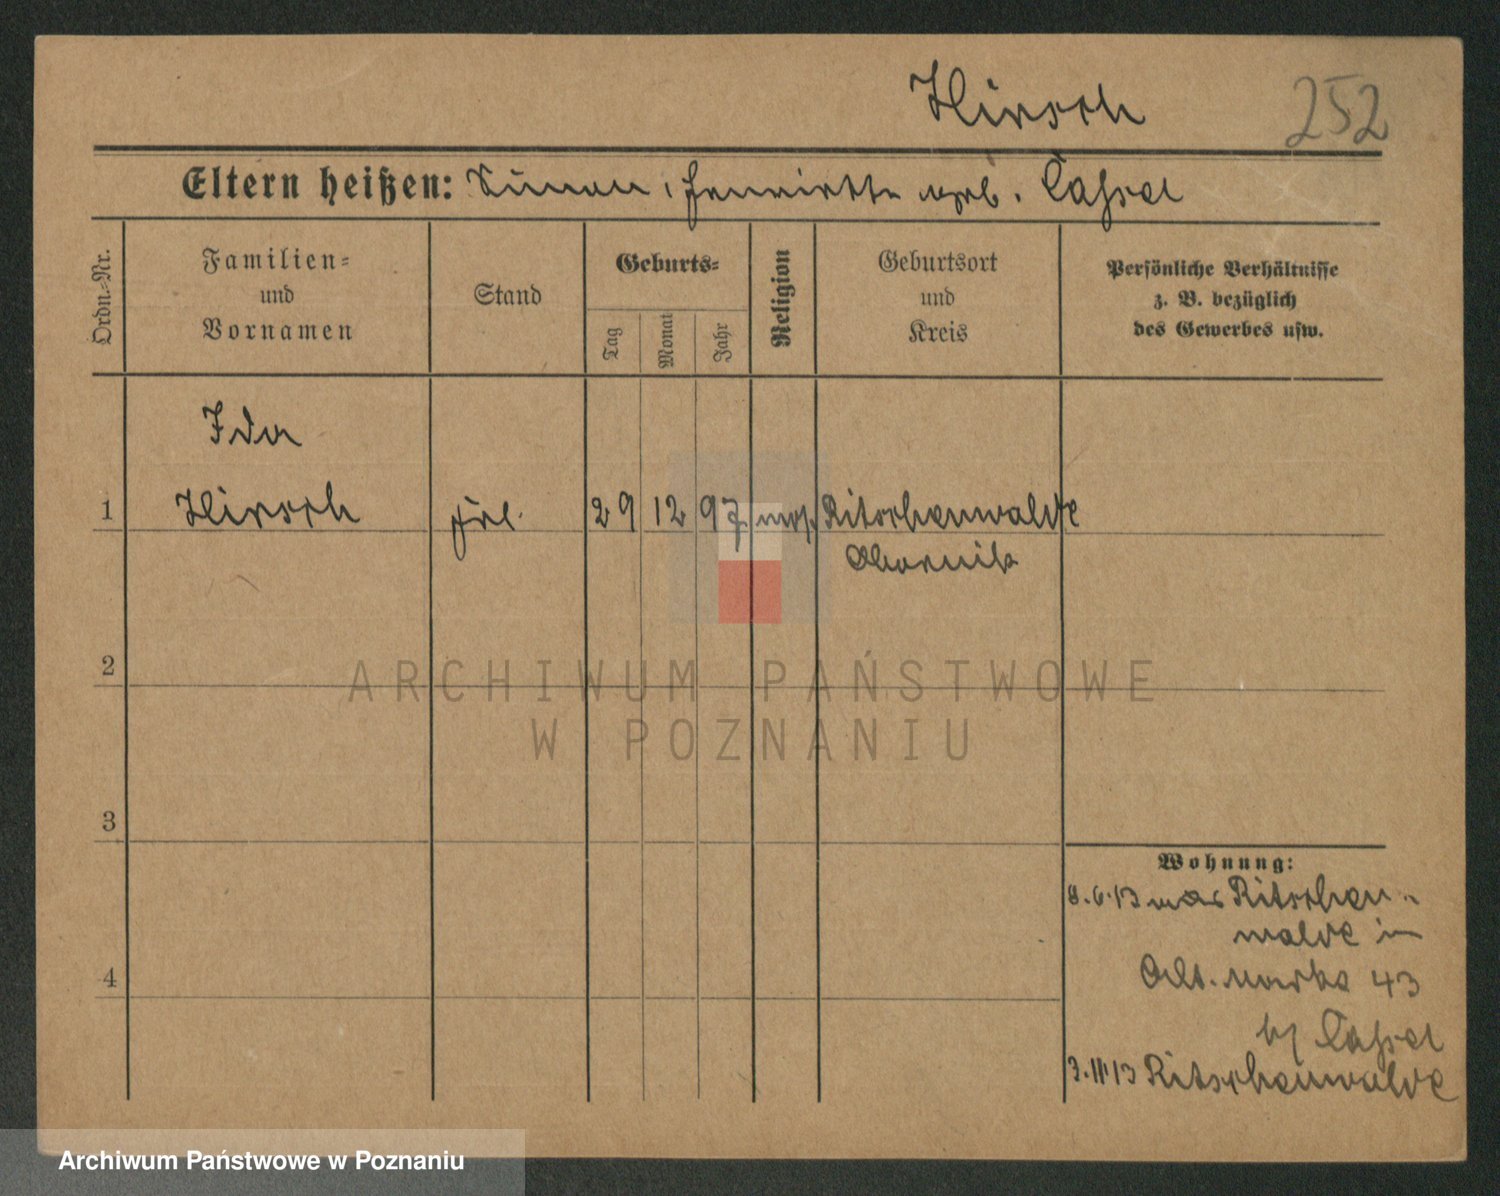 Hirsch
252
Eltern heißen: Simon, Henriette geb. Cassel
Ordn.-Nr.
Familien-
und
Vornamen
Stand
Geburts-
Tag
Monat
Jahr
Religion
Geburtsort
und
Kreis
Persönliche Verhältnisse
z. B. bezüglich
des Gewerbes usw.
Ida
1 Hirsch 29 12 97 mos. Ritschenwalde
Obornik
2
ARCHIWUM PAŃSTWOWE
W POZNANIU
3
Wohnung:
8.6.13 aus Ritschen-
walde in
4
Alt. markt 43
bei Cassel
3.11.13 Ritschenwalde
Archiwum Państwowe w Poznaniu